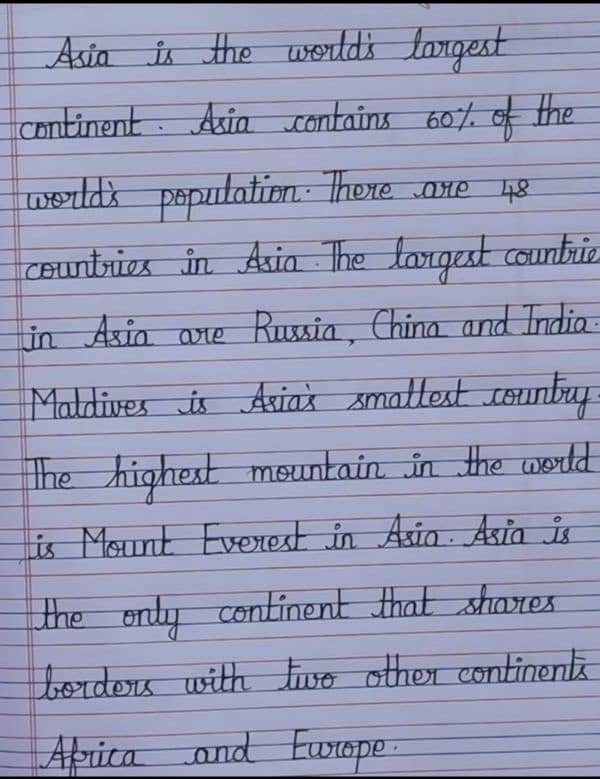 Asia is the world's largest
continent. Asia contains 60% of the
world's population. There are 48
countries in Asia. The largest countrie
in Asia are Russia, China and India.
Maldives is Asia's smallest country.
The highest mountain in the world
is Mount Everest in Asia. Asia is
the only continent that shares
borders with two other continents
Africa and Europe.